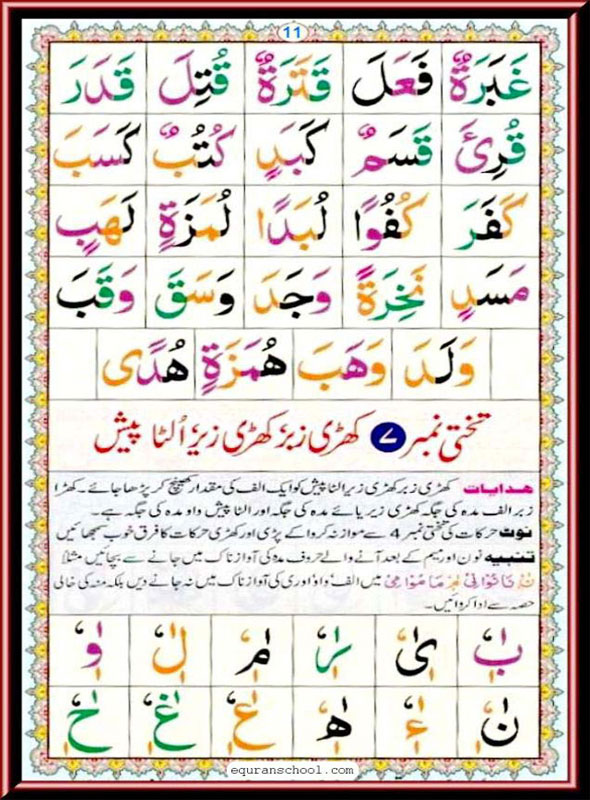 11
غَبَرَةٌ فَعَلَ قَتَرَةٌ قُتِلَ قَدَرَ
قُرِئَ قَسَمٌ كَبَدٍ كُتُبٌ كَسَبَ
كَفَرَ كُفُوًا لُبَدًا لُمَزَةٍ لَهَبٍ
مَسَدٍ نَخِرَةً وَجَدَ وَسَقَ وَقَبَ
وَلَدَ وَهَبَ هُمَزَةٍ هُدًى
تختی نمبر ۷ کھڑی زبر کھڑی زیر اُلٹا پیش
ھدایات کھڑی زبر کھڑی زیر الٹا پیش کو ایک الف کی مقدار کھینچ کر پڑھا جائے۔ کھڑا
زبر الف مدہ کی جگہ کھڑی زیر یائے مدہ کی جگہ اور الٹا پیش واو مدہ کی جگہ ہے۔
نوٹ حرکات کی تختی نمبر 4 سے موازنہ کروا کے پڑی اور کھڑی حرکات کا فرق خوب سمجھائیں
تنبیہ نون اور میم کے بعد آنے والے حروف مدہ کی آواز ناک میں جانے سے بچائیں مثلاً
نَا نُوْا نِیْ مَا مُوْا مِیْ میں الف واؤ اور ی کی آواز ناک میں نہ جانے دیں بلکہ منہ کی خالی
حصہ سے ادا کروائیں۔
equranschool.com